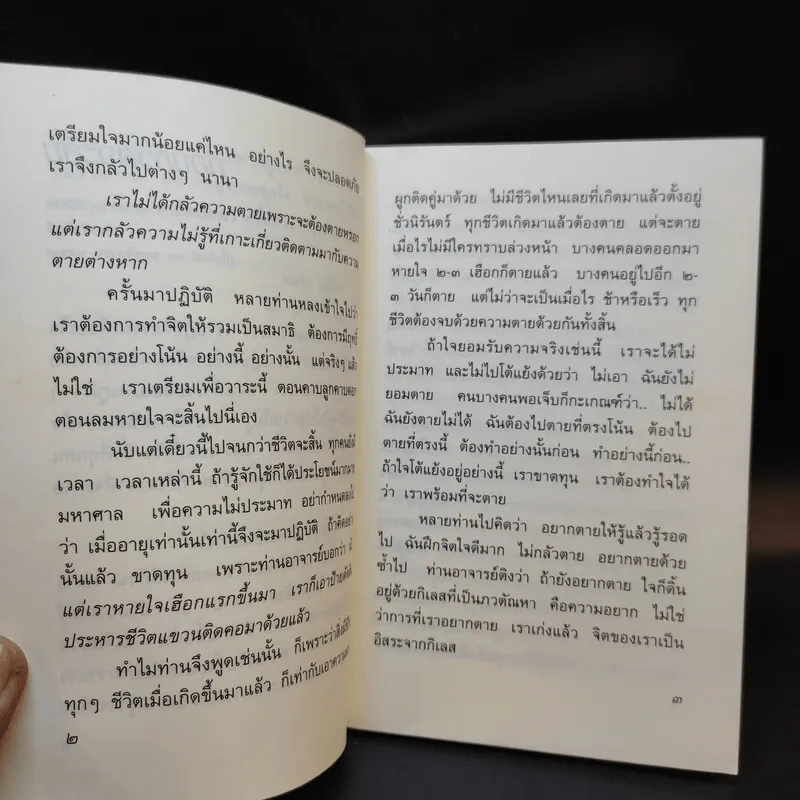 เตรียมใจมากน้อยแค่ไหน อย่างไร จึงจะปลอดภัย
เราจึงกลัวไปต่างๆ นานา
เราไม่ได้กลัวความตายเพราะจะต้องตายหรอก
แต่เรากลัวความไม่รู้ที่เกาะเกี่ยวติดตามมากับความ
ตายต่างหาก
ครั้นมาปฏิบัติ หลายท่านหลงเข้าใจไปว่า
เราต้องการทำจิตให้รวมเป็นสมาธิ ต้องการมีฤทธิ์
ต้องการอย่างโน้น อย่างนี้ อย่างนั้น แต่จริงๆ แล้ว
ไม่ใช่ เราเตรียมเพื่อวาระนี้ ตอนคาบลูกคาบดอก
ตอนลมหายใจจะสิ้นไปนี่เอง
นับแต่เดี๋ยวนี้ไปจนกว่าชีวิตจะสิ้น ทุกคนยังมี
เวลา เวลาเหล่านี้ ถ้ารู้จักใช้ก็ได้ประโยชน์มากมาย
มหาศาล เพื่อความไม่ประมาท อย่ากำหนดลงไป
ว่า เมื่ออายุเท่านั้นเท่านี้จึงจะมาปฏิบัติ ถ้าคิดอย่าง
นั้นแล้ว ขาดทุน เพราะท่านอาจารย์บอกว่า
แต่เราหายใจเฮือกแรกขึ้นมา เราก็เอาป้าย
ประหารชีวิตแขวนติดคอมาด้วยแล้ว
ทำไมท่านจึงพูดเช่นนั้น ก็เพราะว่า
ทุกๆ ชีวิตเมื่อเกิดขึ้นมาแล้ว ก็เท่ากับเอาความตาย
๒
ผูกติดคู่มาด้วย ไม่มีชีวิตไหนเลยที่เกิดมาแล้วตั้งอยู่
ชั่วนิรันดร์ ทุกชีวิตเกิดมาแล้วต้องตาย แต่จะตาย
เมื่อไรไม่มีใครทราบล่วงหน้า บางคนคลอดออกมา
หายใจ ๒-๓ เฮือกก็ตายแล้ว บางคนอยู่ไปอีก ๒-
๓ วันก็ตาย แต่ไม่ว่าจะเป็นเมื่อไร ช้าหรือเร็ว ทุก
ชีวิตต้องจบด้วยความตายด้วยกันทั้งสิ้น
ถ้าใจยอมรับความจริงเช่นนี้ เราจะได้ไม่
ประมาท และไม่ไปโต้แย้งด้วยว่า ไม่เอา ฉันยังไม่
ยอมตาย คนบางคนพอเจ็บก็กะเกณฑ์ว่า.. ไม่ได้
ฉันยังตายไม่ได้ ฉันต้องไปตายที่ตรงโน้น ต้องไป
ตายที่ตรงนี้ ต้องทำอย่างนั้นก่อน ทำอย่างนี้ก่อน..
ถ้าใจโต้แย้งอยู่อย่างนี้ เราขาดทุน เราต้องทำใจได้
ว่า เราพร้อมที่จะตาย
หลายท่านไปคิดว่า อยากตายให้รู้แล้วรู้รอด
ไป ฉันฝึกจิตใจดีมาก ไม่กลัวตาย อยากตายด้วย
ซ้ำไป ท่านอาจารย์ติงว่า ถ้ายังอยากตาย ใจก็ดิ้น
อยู่ด้วยกิเลสที่เป็นภวตัณหา คือความอยาก ไม่ใช่
ว่าการที่เราอยากตาย เราเก่งแล้ว จิตของเราเป็น
อิสระจากกิเลส
๓